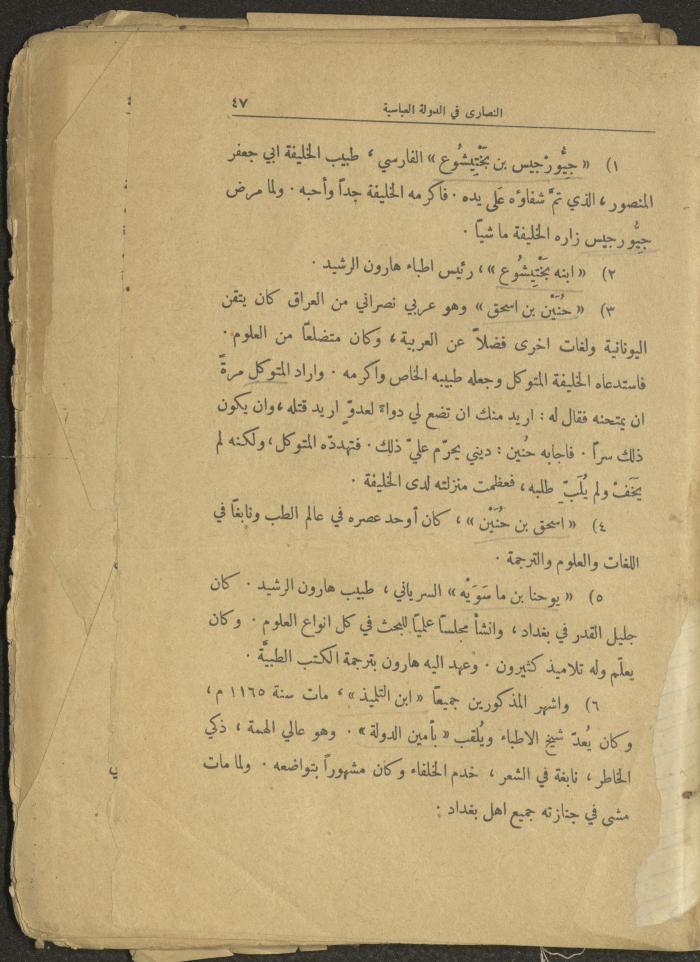 النصارى في الدولة العباسية ٤٧
١) « جيُّورْجيس بن بَخْتِيشُوع » الفارسي ، طبيب الخليفة ابي جعفر
المنصور ، الذي تمَّ شفاؤه عَلَى يده . فاكرمه الخليفة جداً وأحبه . ولما مرض
جيُّورجيس زاره الخليفة ماشيًا .
٢) « ابنه بَخْتِيشُوع » ، رئيس اطباء هارون الرشيد .
٣) « حُنَيْن بن اسحق » وهو عربي نصراني من العراق كان يتقن
اليونانية ولغات اخرى فضلاً عن العربية ، وكان متضلعًا من العلوم .
فاستدعاه الخليفة المتوكل وجعله طبيبه الخاص واكرمه . واراد المتوكل مرةً
ان يمتحنه فقال له : اريد منك ان تضع لي دواءً لعدوٍّ اريد قتله ، وان يكون
ذلك سراً . فاجابه حُنين : ديني يحرّم عليّ ذلك . فتهدّده المتوكل ، ولكنه لم
يَخَفْ ولم يُلَبِّ طلبه ، فعظمت منزلته لدى الخليفة .
٤) « اسحق بن حُنَيْن » ، كان أوحد عصره في عالم الطب ونابغًا في
اللغات والعلوم والترجمة .
٥) « يوحنا بن ماسَوَيْه » السرياني ، طبيب هارون الرشيد . كان
جليل القدر في بغداد ، وانشأ مجلسًا علميًا للبحث في كل انواع العلوم . وكان
يعلّم وله تلاميذ كثيرون . وعهد اليه هارون بترجمة الكتب الطبيَّة .
٦) واشهر المذكورين جميعًا « ابن التلميذ » ، مات سنة ١١٦٥ م ،
وكان يُعدّ شيخ الاطباء ويُلقب « بأمين الدولة » . وهو عالي الهمة ، ذكي
الخاطر ، نابغة في الشعر ، خدم الخلفاء وكان مشهوراً بتواضعه . ولما مات
مشى في جنازته جميع اهل بغداد :